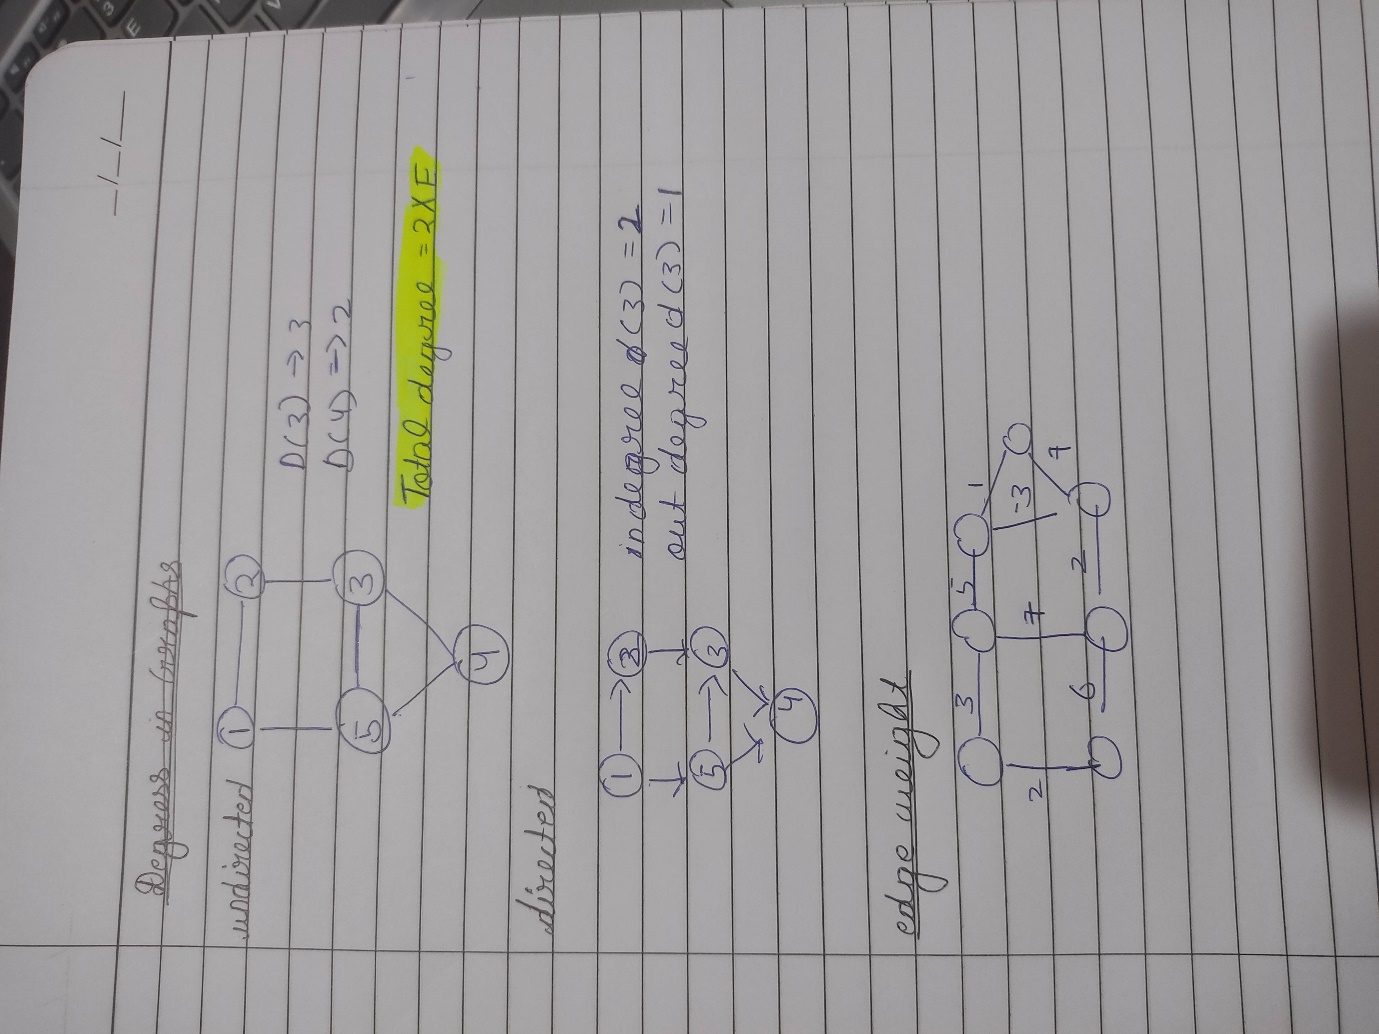 _/_/_
Degrees in Graphs
undirected
1 2
D(3) => 3
D(4) => 2
5 3
4
Total degree = 2XE
directed
1 2 indegree d(3) = 2
5 3 out degree d(3) = 1
4
edge weight
3 5 1
2 7 -3 7
6 2